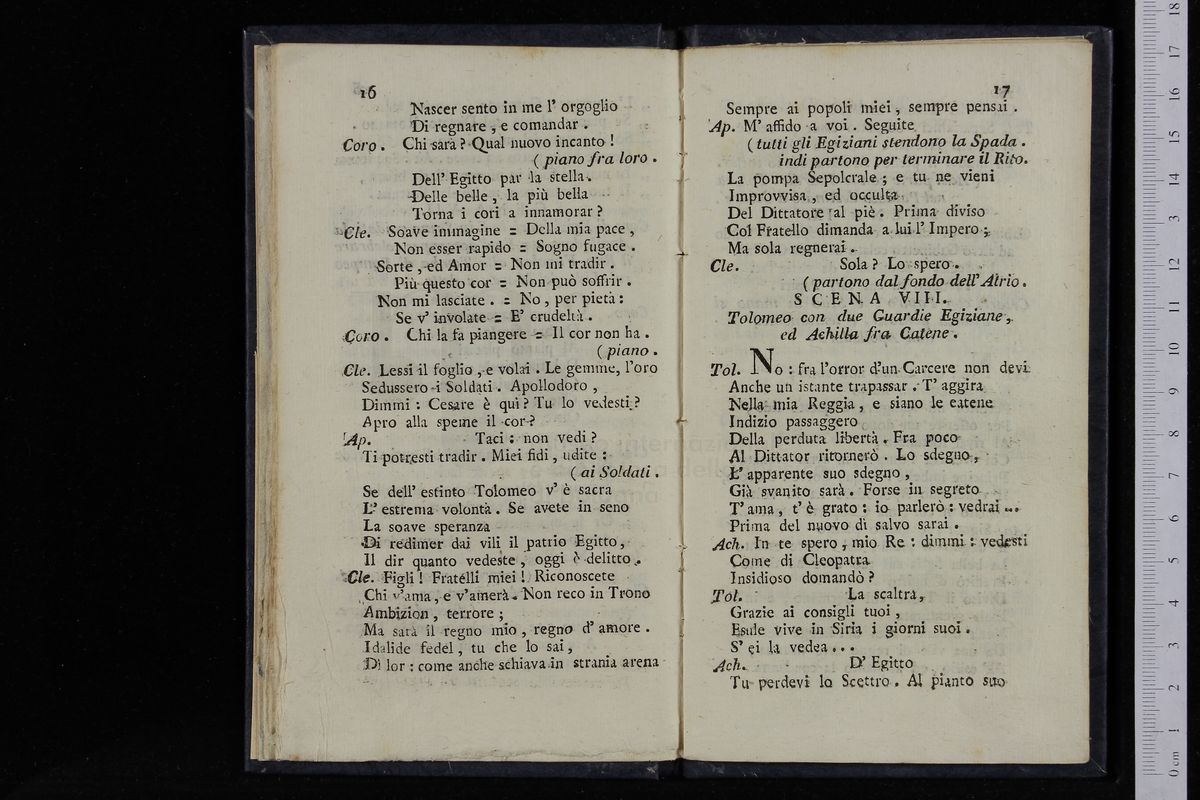 16
Nascer sento in me l' orgoglio
Di regnare , e comandar .
Coro . Chi sarà ? Qual nuovo incanto !
( piano fra loro .
Dell' Egitto par la stella .
Delle belle , la più bella
Torna i cori a innamorar ?
Cle. Soave immagine = Della mia pace ,
Non esser rapido = Sogno fugace .
Sorte , ed Amor = Non mi tradir .
Più questo cor = Non può soffrir .
Non mi lasciate . = No , per pietà :
Se v' involate = E' crudeltà .
Coro . Chi la fa piangere = Il cor non ha .
( piano .
Cle. Lessi il foglio , e volai . Le gemme, l'oro
Sedussero i Soldati . Apollodoro ,
Dimmi : Cesare è qui ? Tu lo vedesti ?
Apro alla speme il cor ?
Ap. Taci : non vedi ?
Ti potresti tradir . Miei fidi , udite :
( ai Soldati .
Se dell' estinto Tolomeo v' è sacra
L' estrema volontà . Se avete in seno
La soave speranza
Di redimer dai vili il patrio Egitto ,
Il dir quanto vedeste , oggi è delitto .
Cle. Figli ! Fratelli miei ! Riconoscete
Chi v'ama , e v'amerà . Non reco in Trono
Ambizion , terrore ;
Ma sarà il regno mio , regno d' amore .
Idalide fedel , tu che lo sai ,
Di lor : come anche schiava in strania arena
17
Sempre ai popoli miei , sempre pensai .
Ap. M' affido a voi . Seguite
( tutti gli Egiziani stendono la Spada .
indi partono per terminare il Rito.
La pompa Sepolcrale ; e tu ne vieni
Improvvisa , ed occulta
Del Dittatore al piè . Prima diviso
Col Fratello dimanda a lui l' Impero ;
Ma sola regnerai .
Cle. Sola ? Lo spero .
( partono dal fondo dell' Atrio .
SCENA VIII.
Tolomeo con due Guardie Egiziane ,
ed Achilla fra Catene .
Tol. No : fra l'orror d'un Carcere non devi
Anche un istante trapassar . T' aggira
Nella mia Reggia , e siano le catene
Indizio passaggero
Della perduta libertà . Fra poco
Al Dittator ritornerò . Lo sdegno ,
L' apparente suo sdegno ,
Già svanito sarà . Forse in segreto
T' ama , t' è grato : io parlerò : vedrai ...
Prima del nuovo dì salvo sarai .
Ach. In te spero , mio Re : dimmi : vedesti
Come di Cleopatra
Insidioso domandò ?
Tol. La scaltra ,
Grazie ai consigli tuoi ,
Esule vive in Siria i giorni suoi .
S' ei la vedea ...
Ach. D' Egitto
Tu perdevi lo Scettro . Al pianto suo